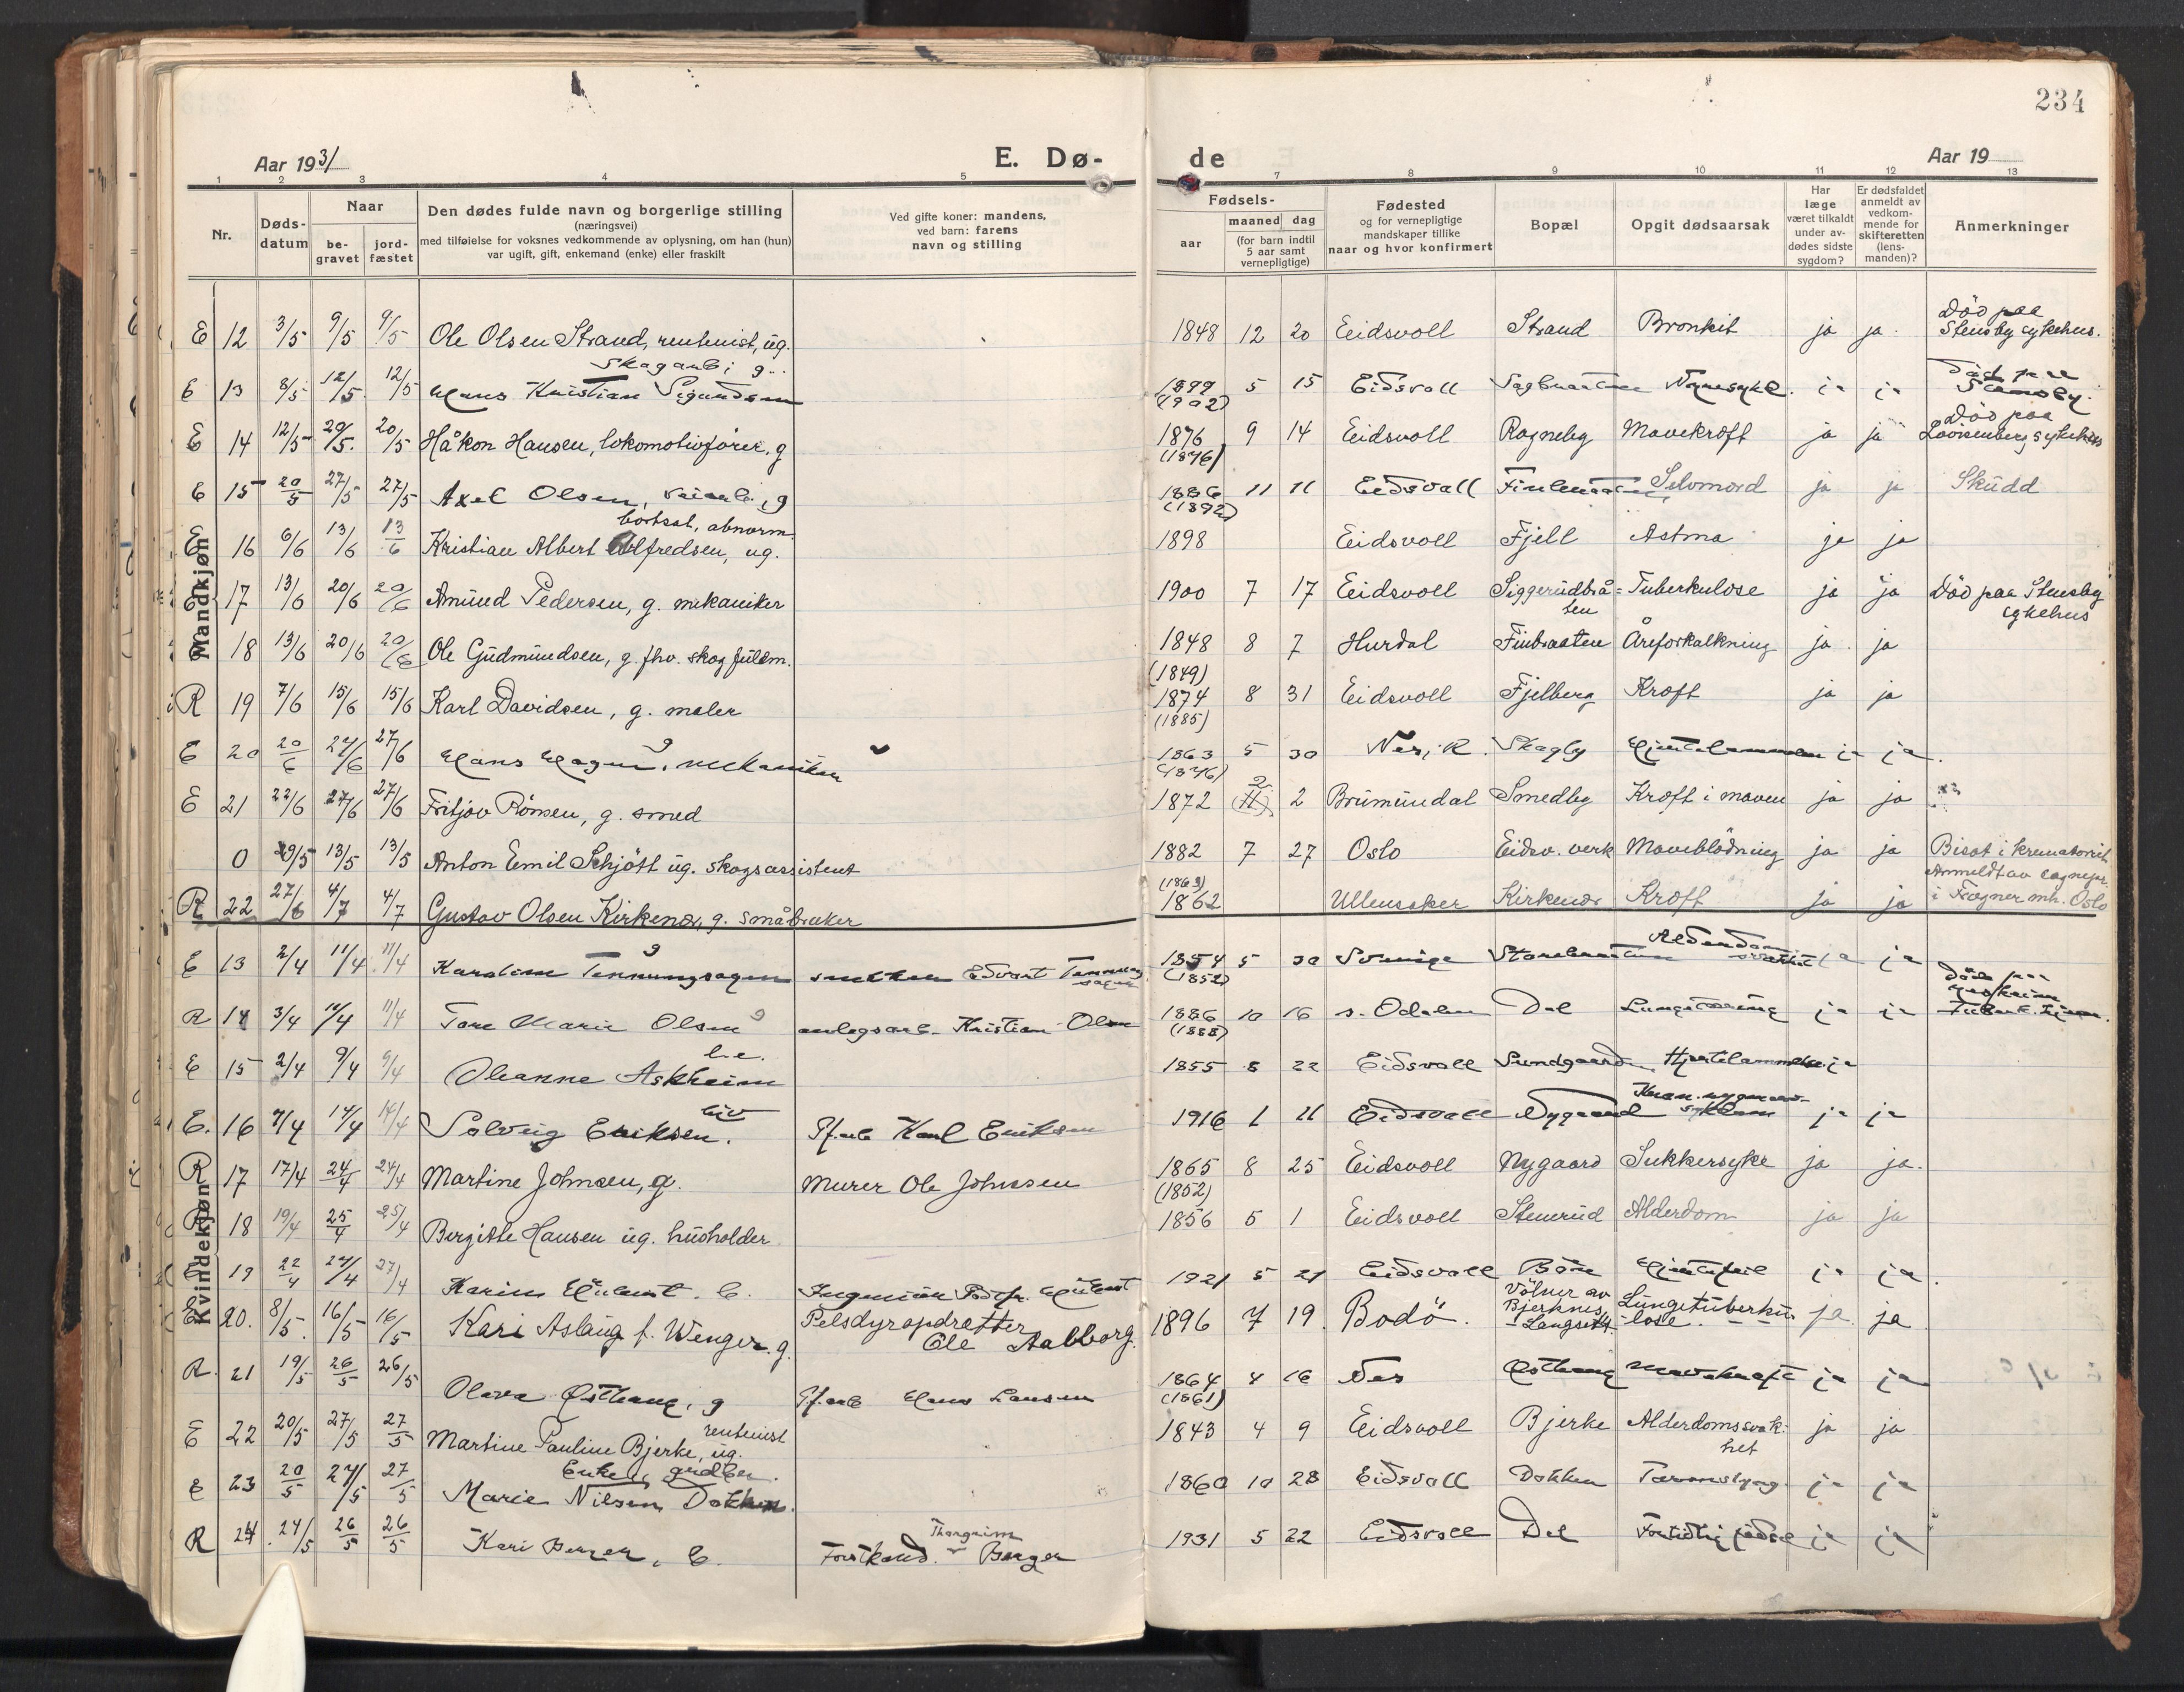 234
Aar 1931
E. Dø-
de
Aar 19
1 2 3 4 5 7 8 9 10 11 12 13
Nr.
Døds-
datum
Naar
be-
gravet
jord-
fæstet
Den dødes fulde navn og borgerlige stilling
(næringsvei)
med tilføielse for voksnes vedkommende av oplysning, om han (hun)
var ugift, gift, enkemand (enke) eller fraskilt
Ved gifte koner: mandens,
ved barn: farens
navn og stilling
Fødsels-
aar
maaned dag
(for barn indtil
5 aar samt
vernepligtige)
Fødested
og for vernepligtige
mandskaper tillike
naar og hvor konfirmert
Bopæl
Opgit dødsaarsak
Har
læge
været tilkaldt
under av-
dødes sidste
sygdom?
Er dødsfaldet
anmeldt av
vedkom-
mende for
skifteretten
(lens-
manden)?
Anmerkninger
Mandkjøn
E 12 3/5 9/5 9/5 Ole Olsen Strand, rentenist, ug. 1848 12 20 Eidsvoll Strand Bronkit ja ja. Död paa
Stensby sykehus.
Skogarb; g.
E 13 8/5 12/5 12/5 Hans Kristian Sigurdsen 1899 5 15 Eidsvoll Nyresykd. ja ja Död paa
(1902) Stensby.
E 14 12/5 20/5 20/5 Håkon Hansen, lokomotivfører. g 1876 9 14 Eidsvoll Rogneby Mavekræft ja ja Död paa
(1876) Lovisenberg sykehus
E 15 20/5 27/5 27/5 Axel Olsen, veiarb., g 1886 11 11 Eidsvoll Selvmord ja ja Skudd
(1892)
bortsat, abnorm.
E 16 6/6 13/6 13/6 Kristian Albert Alfredsen, ug. 1898 Eidsvoll Fjell Astma ja ja
E 17 13/6 20/6 20/6 Amund Pedersen, g. mekaniker 1900 7 17 Eidsvoll Siggerudbrå= Tuberkulose ja ja Död paa Stensby
ten sykehus
18 13/6 20/6 20/6 Ole Gudmundsen, g. fhv. skogfuldm. 1848 8 7 Hurdal Finbraaten Åreforkalkning ja ja
(1849)
R 19 7/6 15/6 15/6 Karl Davidsen, g. maler 1874 8 31 Eidsvoll Fjelberg Kræft ja ja
(1885)
E 20 20/6 27/6 27/6 Hans Hagen, g mekaniker 1863 5 30 Nes, R. Skogly Hjertelammelse ja ja.
(1876)
E 21 22/6 27/6 27/6 Fritjov Rönsen, g. smed 1872 2 2 Brumundal Smedby Kræft i maven ja ja
0 29/5 13/5 13/5 Anton Emil Schjött ug. skogsassistent 1882 7 27 Oslo Eidsv. verk Maveblödning ja ja Bisat i krematoriet.
Anmeldt av sognepr.
(1863)
R 22 27/6 4/7 4/7 Gustav Olsen Kirkenær, g. småbruker 1862 Ullensaker Kirkenær Kræft ja ja i Frogner mh. Oslo
Kvindekjøn
E 13 2/4 11/4 11/4 Karoline g snekker Edvart 1854 5 30 Sverige Alderdoms ja ja
(1852)
R 14 3/4 11/4 11/4 Tore Marie Olsen g anlegsarb. Kristian Olsen 1886 10 16 s. Odalen Dal ja ja Död paa
(1888)
E 15 2/4 9/4 9/4 Oleanne Askheim 1855 8 22 Eidsvoll Sundgaarden Hjertelammelse ja
E. 16 7/4 14/4 14/4 Solveig Eriksen. Karl Eriksen 1916 1 11 Eidsvoll Nygaard ja ja
R 17 17/4 24/4 24/4 Martine Johnsen, g. Murer Ole Johnsen 1865 8 25 Eidsvoll Nygaard Sukkersyke ja ja.
(1852)
R 18 19/4 25/4 25/4 Bergitte Hansen ug. husholder 1856 5 1 Eidsvoll Stenerud Alderdom ja ja
E 19 22/4 27/4 27/4 Karin b. Ingeniör 1921 5 21 Eidsvoll Bön Hjertefeil ja ja.
E 20. 8/5. 16/5 16/5 Kari Aslaug f. Wenger. g. Pelsdyropdretter
Ole Aalborg. 1896 7 19. Bodö. Völner av
Bjerknes
-Langset. Lungetuberku-
lose. ja. ja
R 21 19/5 26/5 26/5 Olava Østhang, g Hans Larsen 1864 4 16 Nes Østhang Mavekræft ja ja
(1861)
rentenist
E 22 20/5 27/5 27/5 Martine Pauline Bjerke, ug. 1843 4 9 Eidsvoll Bjerke Alderdomssvak-
het ja ja
Enke, grdbr.
E 23 20/5 27/5 27/5 Marie Nilsen Dokken. 1860 10 28 Eidsvoll Dokken Tarmslyng ja ja
R 24 24/5 26/5 26/5 Kari Berger, b. Forstkand. Thorgrim Berger 1931 5 22 Eidsvoll Dal Fortidlig födsel ja ja